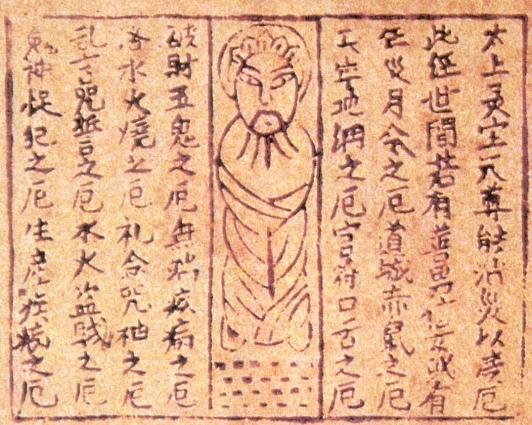 太上灵宝天尊能消災以度厄
此経世間若有善男女或有
災月令之厄道赤鼠之厄
天地網之厄官符口舌之厄
破財五鬼之厄無病疾病之厄
落水火燒之厄礼合咒神之厄
乱言咒誓言之厄水火盗賊之厄
鬼神捉犯之厄生産疾病之厄